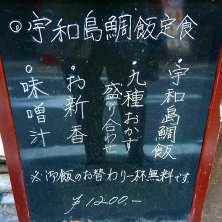 ◎宇和島鯛飯定食
・宇和島鯛飯
・九種おかず
盛り合わせ
・お新香
・味噌汁
※御飯のお替わり一杯無料です
¥1200.-